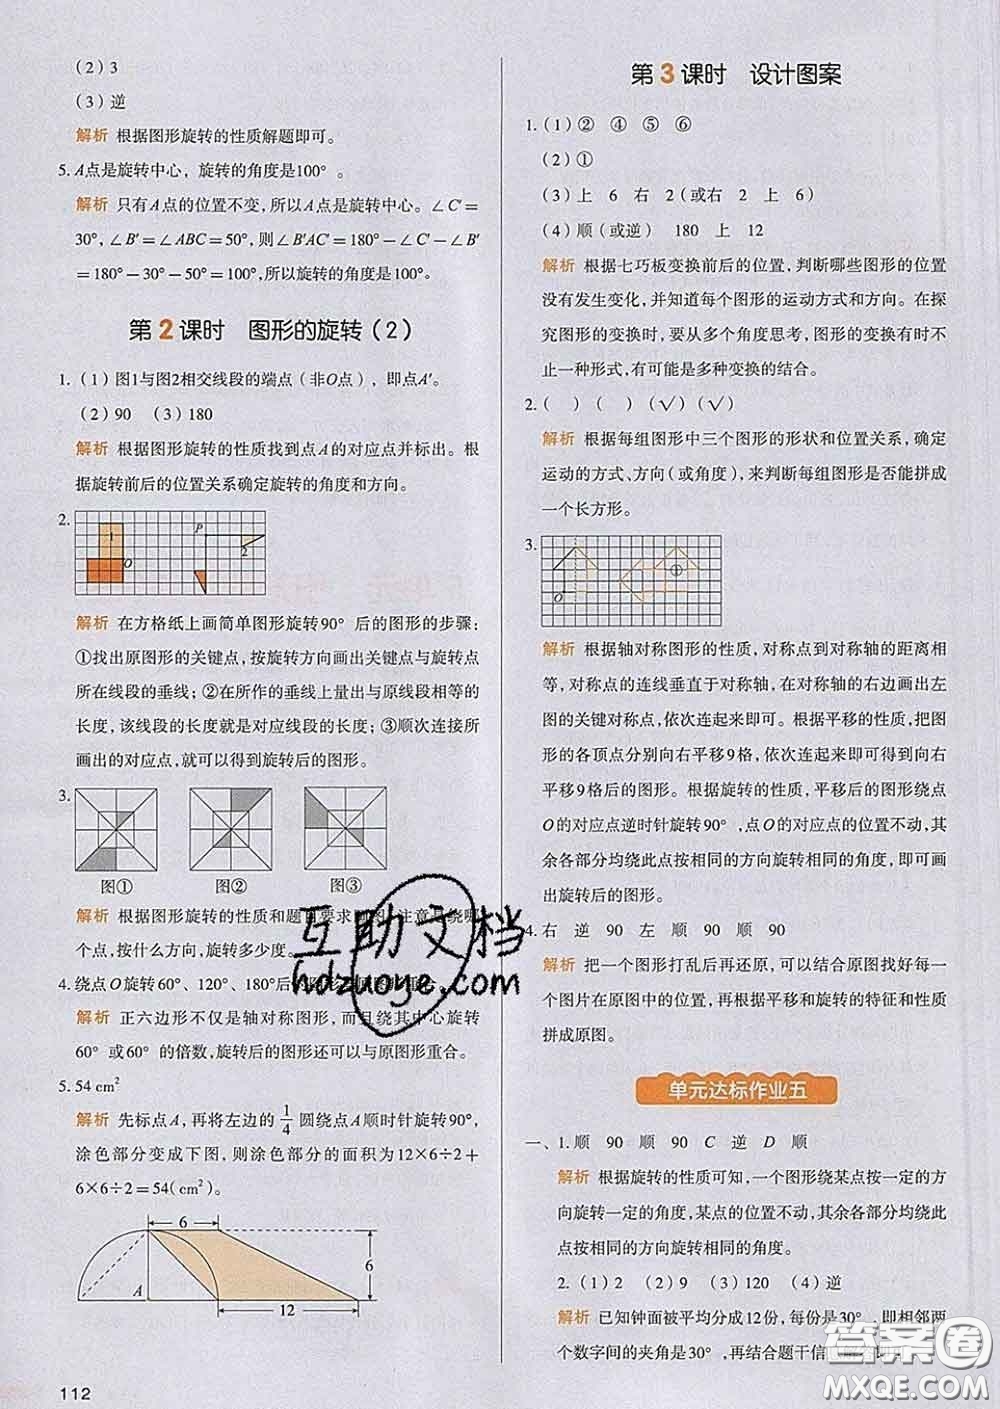 (2)3
(3)逆
解析 根据图形旋转的性质解题即可。
5. A点是旋转中心，旋转的角度是100°。
解析 只有A点的位置不变,所以A点是旋转中心。∠C′=
30°,∠B′=∠ABC=50°,则∠B′AC′=180°-∠C′-∠B′
=180°-30°-50°=100°,所以旋转的角度是100°。
第2课时 图形的旋转(2)
1.(1)图1与图2相交线段的端点(非O点)，即点A′。
(2)90 (3)180
解析 根据图形旋转的性质找到点A的对应点并标出。根
据旋转前后的位置关系确定旋转的角度和方向。
2.
1
O
P
2
解析 在方格纸上画简单图形旋转90°后的图形的步骤:
①找出原图形的关键点,按旋转方向画出关键点与旋转点
所在线段的垂线;②在所作的垂线上量出与原线段相等的
长度,该线段的长度就是对应线段的长度;③顺次连接所
画出的对应点,就可以得到旋转后的图形。
3.
图① 图② 图③
解析 根据图形旋转的性质和题目要求画图,注意是绕哪
个点,按什么方向,旋转多少度。
4. 绕点O旋转60°、120°、180°后
解析 正六边形不仅是轴对称图形,而且绕其中心旋转
60°或60°的倍数,旋转后的图形还可以与原图形重合。
5. 54 cm²
解析 先标点A,再将左边的1/4圆绕点A顺时针旋转90°,
涂色部分变成下图,则涂色部分的面积为12×6÷2+
6×6÷2=54(cm²)。
6
6
A
12
112
第3课时 设计图案
1.(1)② ④ ⑤ ⑥
(2)①
(3)上 6 右 2(或右 2 上 6)
(4)顺(或逆) 180 上 12
解析 根据七巧板变换前后的位置,判断哪些图形的位置
没有发生变化,并知道每个图形的运动方式和方向。在探
究图形的变换时,要从多个角度思考,图形的变换有时不
止一种形式,有可能是多种变换的结合。
2.( ) ( ) (√) (√)
解析 根据每组图形中三个图形的形状和位置关系,确定
运动的方式、方向(或角度),来判断每组图形是否能拼成
一个长方形。
3.
O
①
解析 根据轴对称图形的性质,对称点到对称轴的距离相
等,对称点的连线垂直于对称轴,在对称轴的右边画出左
图的关键对称点,依次连起来即可。根据平移的性质,把图
形的各顶点分别向右平移9格,依次连起来即可画出向右
平移9格后的图形。根据旋转的性质,平移后的图形绕点
O的对应点逆时针旋转90°,点O的对应点的位置不动,其
余各部分均绕此点按相同的方向旋转相同的角度,即可画
出旋转后的图形。
4. 右 逆 90 左 顺 90 顺 90
解析 把一个图形打乱后再还原,可以结合原图找好每一
个图片在原图中的位置,再根据平移和旋转的特征和性质
拼成原图。
单元达标作业五
一、1. 顺 90 顺 90 C 逆 D 顺
解析 根据旋转的性质可知,一个图形绕某点按一定的方
向旋转一定的角度,某点的位置不动,其余各部分均绕此
点按相同的方向旋转相同的角度。
2.(1)2 (2)9 (3)120 (4)逆
解析 已知钟面被平均分成12份,每份是30°,即相邻两
个数字间的夹角是30°,再结合题干信
互助文档
hdzuoye.com
答案圈
MXQE.COM